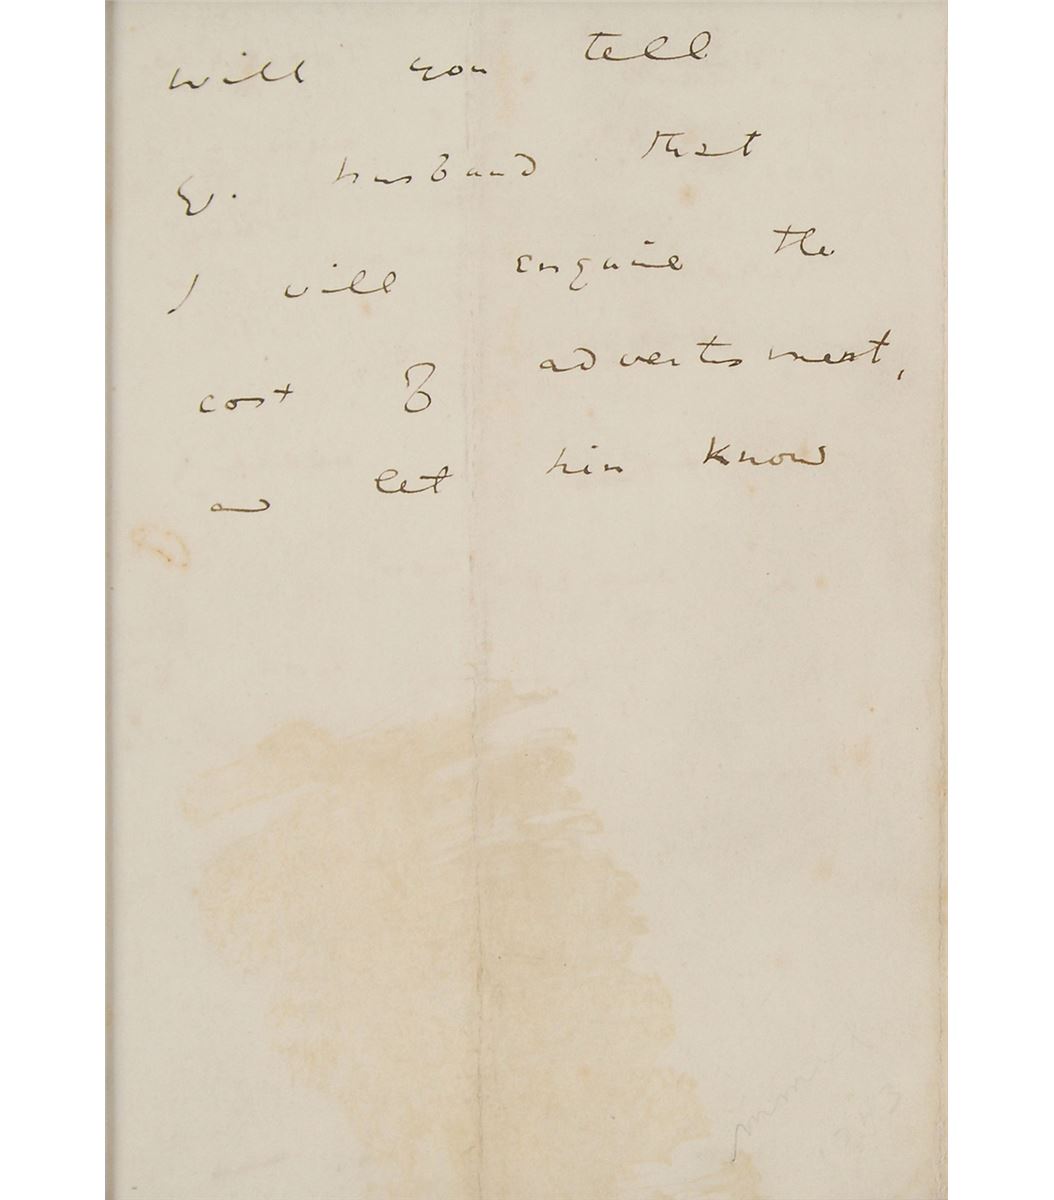 will you tell
yr. husband that
I will enquire the
cost of advertisment,
and let him know